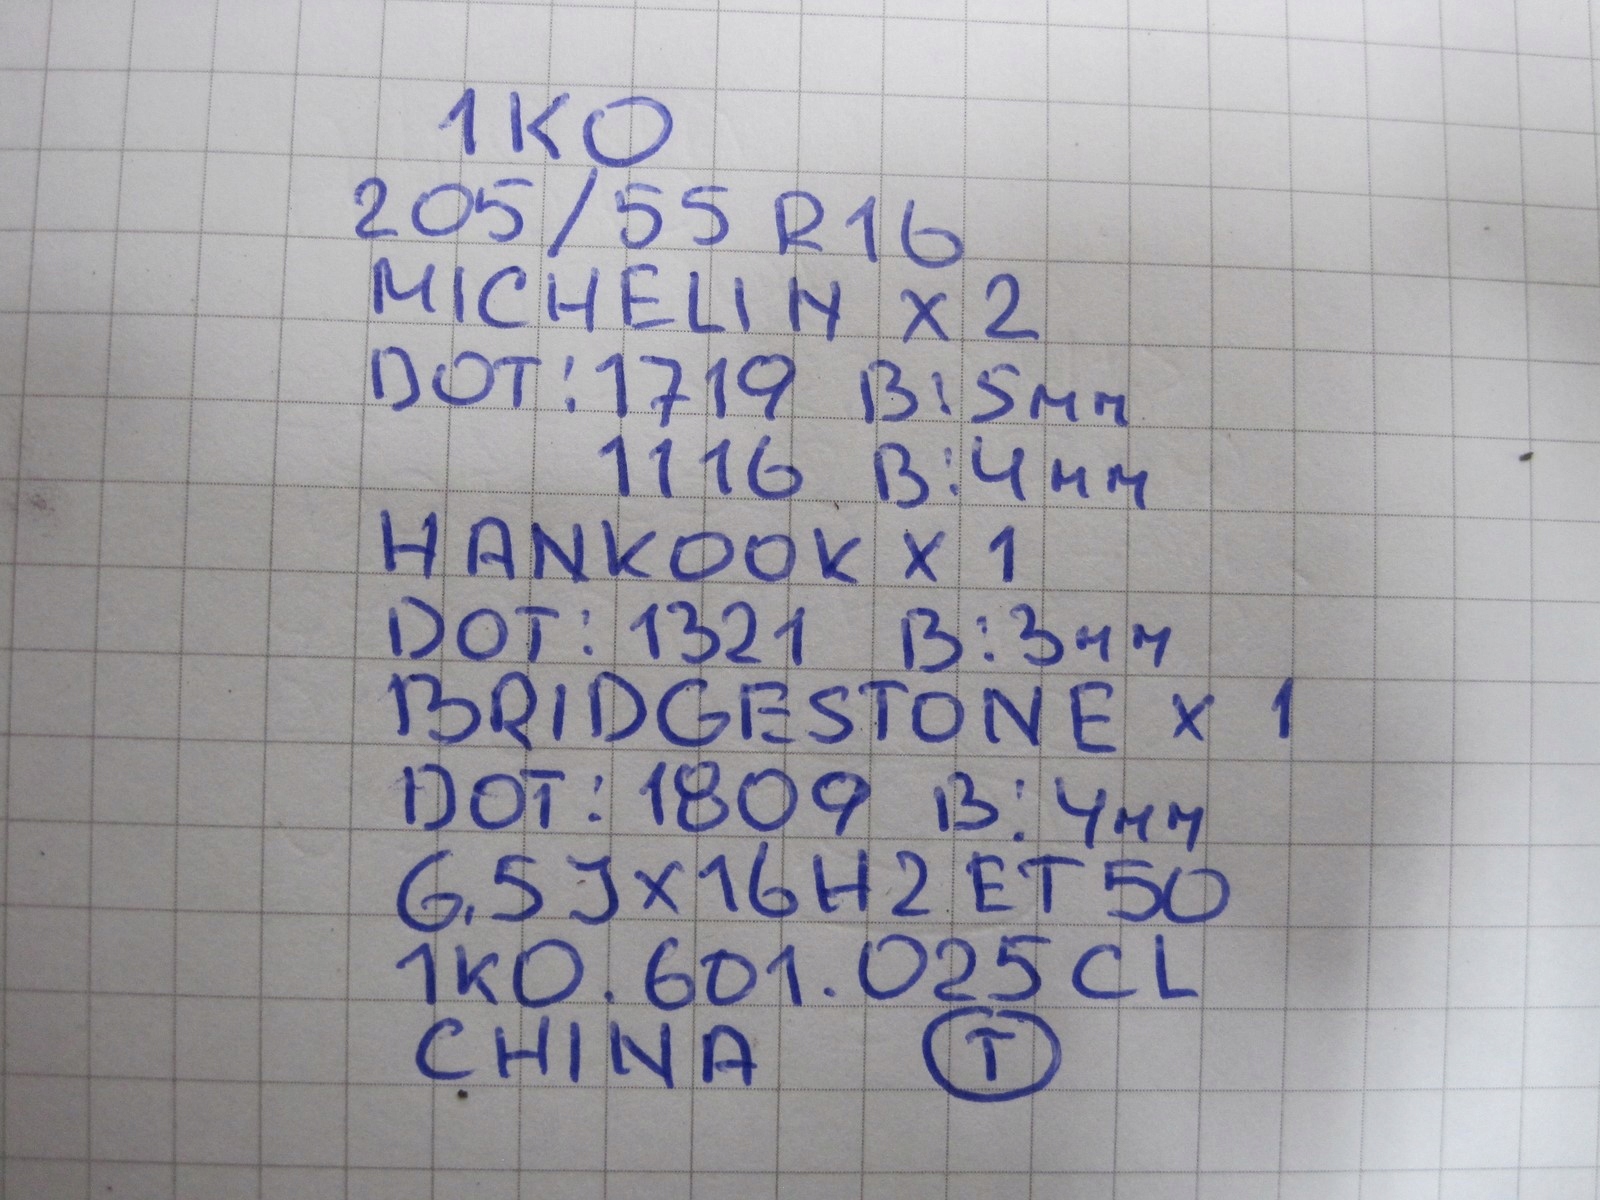 1KO
205/55 R16
MICHELIN x 2
DOT: 1719 B: 5мм
1116 B: 4мм
HANKOOK x 1
DOT: 1321 B: 3мм
BRIDGESTONE x 1
DOT: 1809 B: 4мм
6.5Jx16H2 ET50
1KO.601.025CL
CHINA T